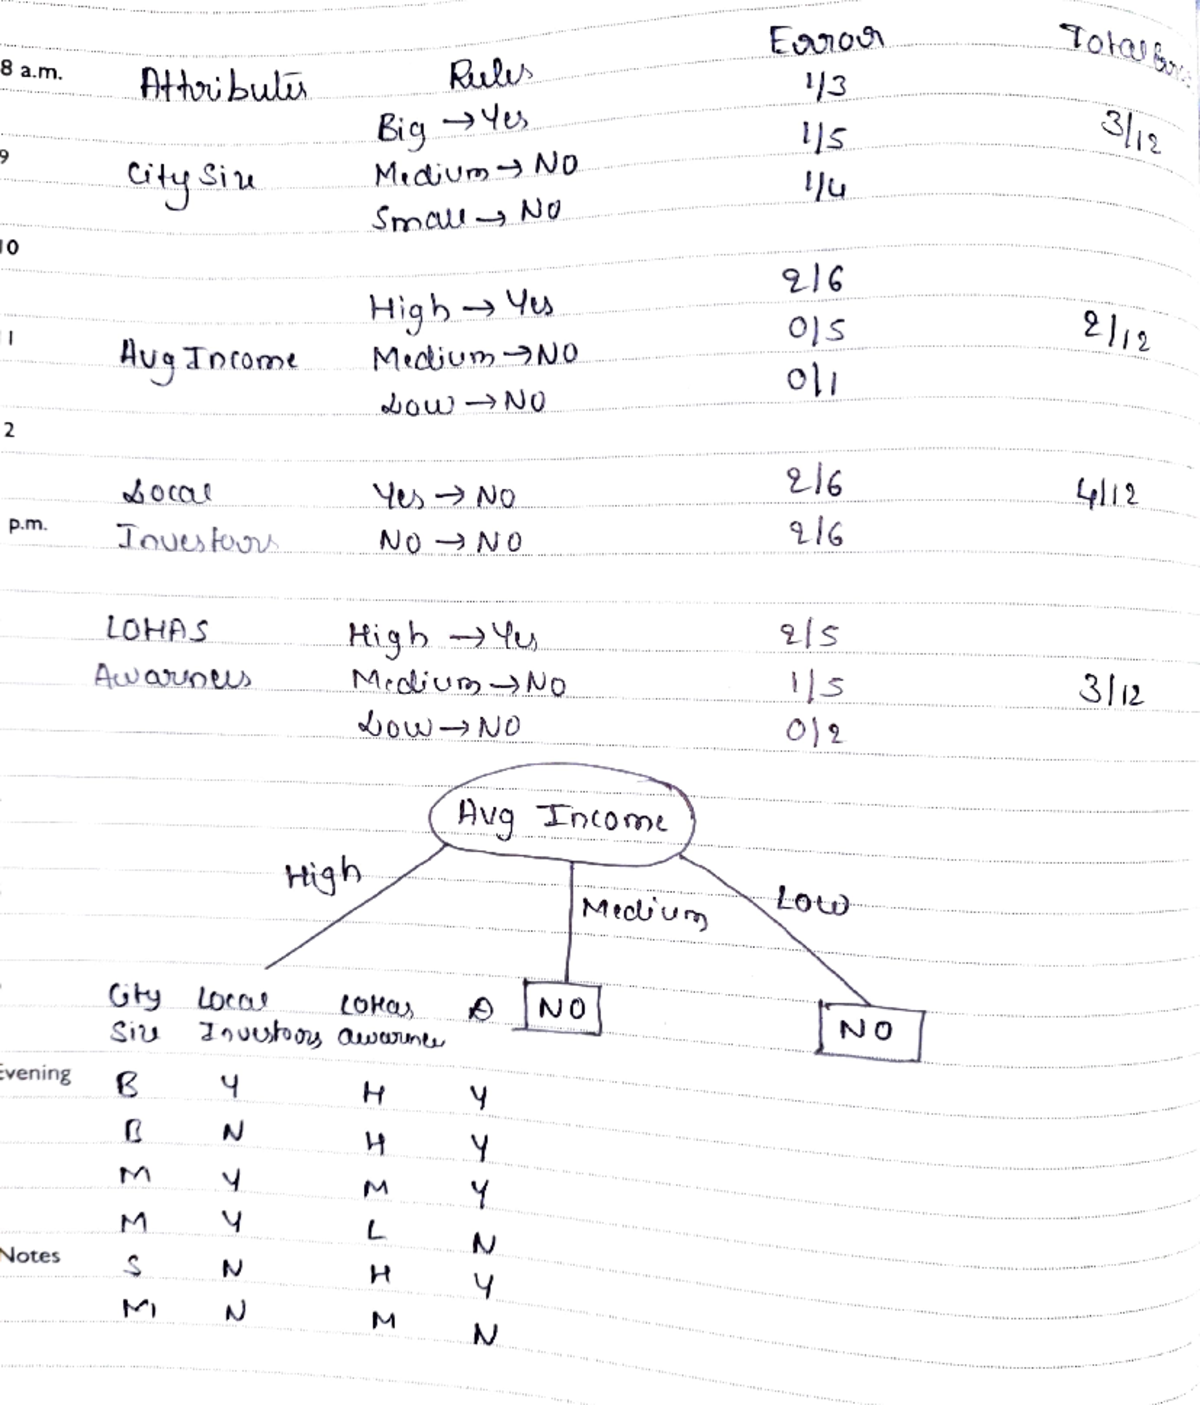 Attributes Rules Error Total
8 a.m.
Big → Yes 1/3
9 City Size Medium → NO 1/5 3/12
Small → NO 1/4
10
High → Yes 2/6
1 Avg Income Medium → NO 0/5 2/12
Low → NO 0/1
2
Local Yes → NO 2/6 4/12
p.m. Investors NO → NO 2/6
LOHAS High → Yes 2/5
Awarness Medium → NO 1/5 3/12
Low → NO 0/2
Avg Income
High Medium Low
City Local LOHAS NO
Size Investors awarnes NO
Evening B Y H Y
B N H Y
M Y M Y
M Y L N
Notes S N H Y
M N M N